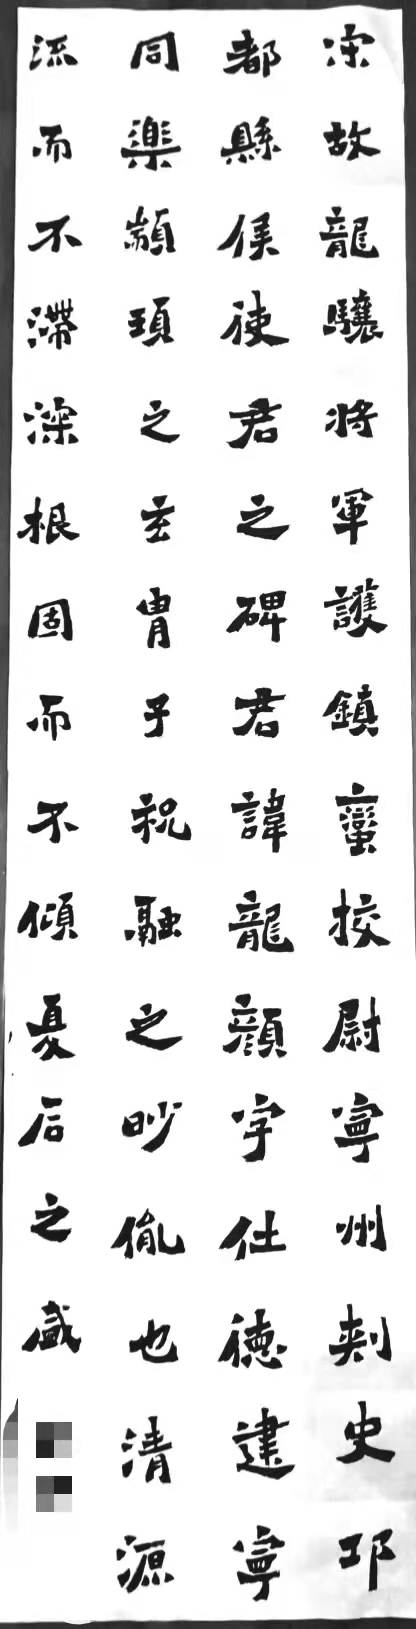 宋故龍驤將軍護鎮蠻挍尉寧州刾史邛
都縣侯使君之碑君諱龍顏字仕德建寧
同樂顓頊之玄胄子祝融之眇胤也清源
流而不滯深根固而不傾夏后之盛